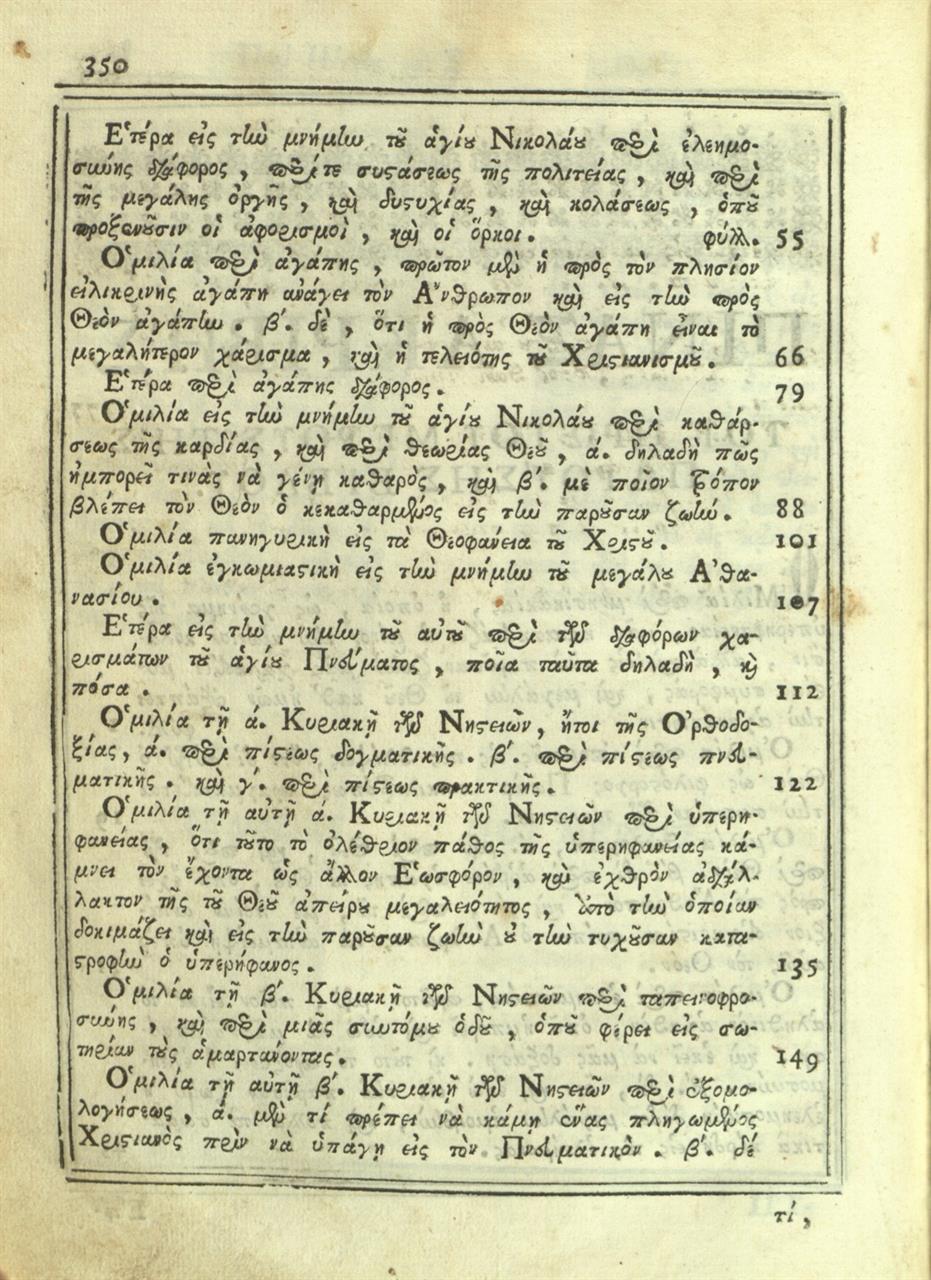 350
Ἑτέρα εἰς τὴν μνήμην τοῦ ἁγίου Νικολάου περὶ ἐλεημο-
σύνης διάφορος, περί τε συστάσεως τῆς πολιτείας, καὶ περὶ
τῆς μεγάλης ὀργῆς, καὶ δυστυχίας, καὶ κολάσεως, ὁποῦ
προξενοῦσιν οἱ ἀφορισμοὶ, καὶ οἱ ὅρκοι. φύλλ. 55
Ὁμιλία περὶ ἀγάπης, πρῶτον μὲν ἡ πρὸς τὸν πλησίον
εἰλικρινὴς ἀγάπη ἀνάγει τὸν Ἄνθρωπον καὶ εἰς τὴν πρὸς
Θεὸν ἀγάπην. β΄. δὲ, ὅτι ἡ πρὸς Θεὸν ἀγάπη εἶναι τὸ
μεγαλήτερον χάρισμα, καὶ ἡ τελειότης τοῦ Χριστιανισμοῦ. 66
Ἑτέρα περὶ ἀγάπης διάφορος. 79
Ὁμιλία εἰς τὴν μνήμην τοῦ ἁγίου Νικολάου περὶ καθάρ-
σεως τῆς καρδίας, καὶ περὶ θεωρίας Θεοῦ, ά. δηλαδὴ πῶς
ἠμπορεῖ τινὰς νὰ γένῃ καθαρὸς, καὶ β΄. μὲ ποῖον τρόπον
βλέπει τὸν Θεὸν ὁ κεκαθαρμένος εἰς τὴν παροῦσαν ζωήν. 88
Ὁμιλία πανηγυρικὴ εἰς τὰ Θεοφάνεια τοῦ Χριστοῦ. 101
Ὁμιλία ἐγκωμιαστικὴ εἰς τὴν μνήμην τοῦ μεγάλου Ἀθα-
νασίου. 107
Ἑτέρα εἰς τὴν μνήμην τοῦ αὐτοῦ περὶ τῶν διαφόρων χα-
ρισμάτων τοῦ ἁγίου Πνεύματος, ποῖα ταῦτα δηλαδὴ, καὶ
πόσα. 112
Ὁμιλία τῇ ά. Κυριακῇ τῶν Νηστειῶν, ἤτοι τῆς Ὀρθοδο-
ξίας, ά. περὶ πίστεως δογματικῆς. β΄. περὶ πίστεως πνευ-
ματικῆς. καὶ γ΄. περὶ πίστεως πρακτικῆς. 122
Ὁμιλία τῇ αὐτῇ ά. Κυριακῇ τῶν Νηστειῶν περὶ ὑπερη-
φανείας, ὅτι τοῦτο τὸ ὀλέθριον πάθος τῆς ὑπερηφανείας κά-
μνει τὸν ἔχοντα ὡς ἄλλον Ἑωσφόρον, καὶ ἐχθρὸν ἀδιάλ-
λακτον τῆς τοῦ Θεοῦ ἀπείρου μεγαλειότητος, ὑπὸ τὴν ὁποίαν
δοκιμάζει καὶ εἰς τὴν παροῦσαν ζωὴν οὐ τὴν τυχοῦσαν κατα-
στροφὴν ὁ ὑπερήφανος. 135
Ὁμιλία τῇ β΄. Κυριακῇ τῶν Νηστειῶν περὶ ταπεινοφρο-
σύνης, καὶ περὶ μιᾶς συντόμου ὁδοῦ, ὁποῦ φέρει εἰς σω-
τηρίαν τοὺς ἁμαρτάνοντας. 149
Ὁμιλία τῇ αὐτῇ β΄. Κυριακῇ τῶν Νηστειῶν περὶ ἐξομο-
λογήσεως, ά. μὲν τί πρέπει νὰ κάμῃ ἕνας πληγωμένος
Χριστιανὸς πρὶν νὰ ὑπάγῃ εἰς τὸν Πνευματικὸν. β΄. δέ
τί,